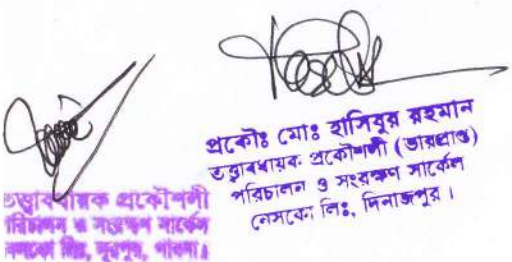 প্রকৌঃ মোঃ হাসিবুর রহমান
তত্ত্বাবধায়ক প্রকৌশলী (ভারপ্রাপ্ত)
পরিচালন ও সংরক্ষণ সার্কেল
নেসকো লিঃ, দিনাজপুর।
তত্ত্বাবধায়ক প্রকৌশলী
পরিচালন ও সংরক্ষণ সার্কেল
নেসকো লিঃ, পাবনা।